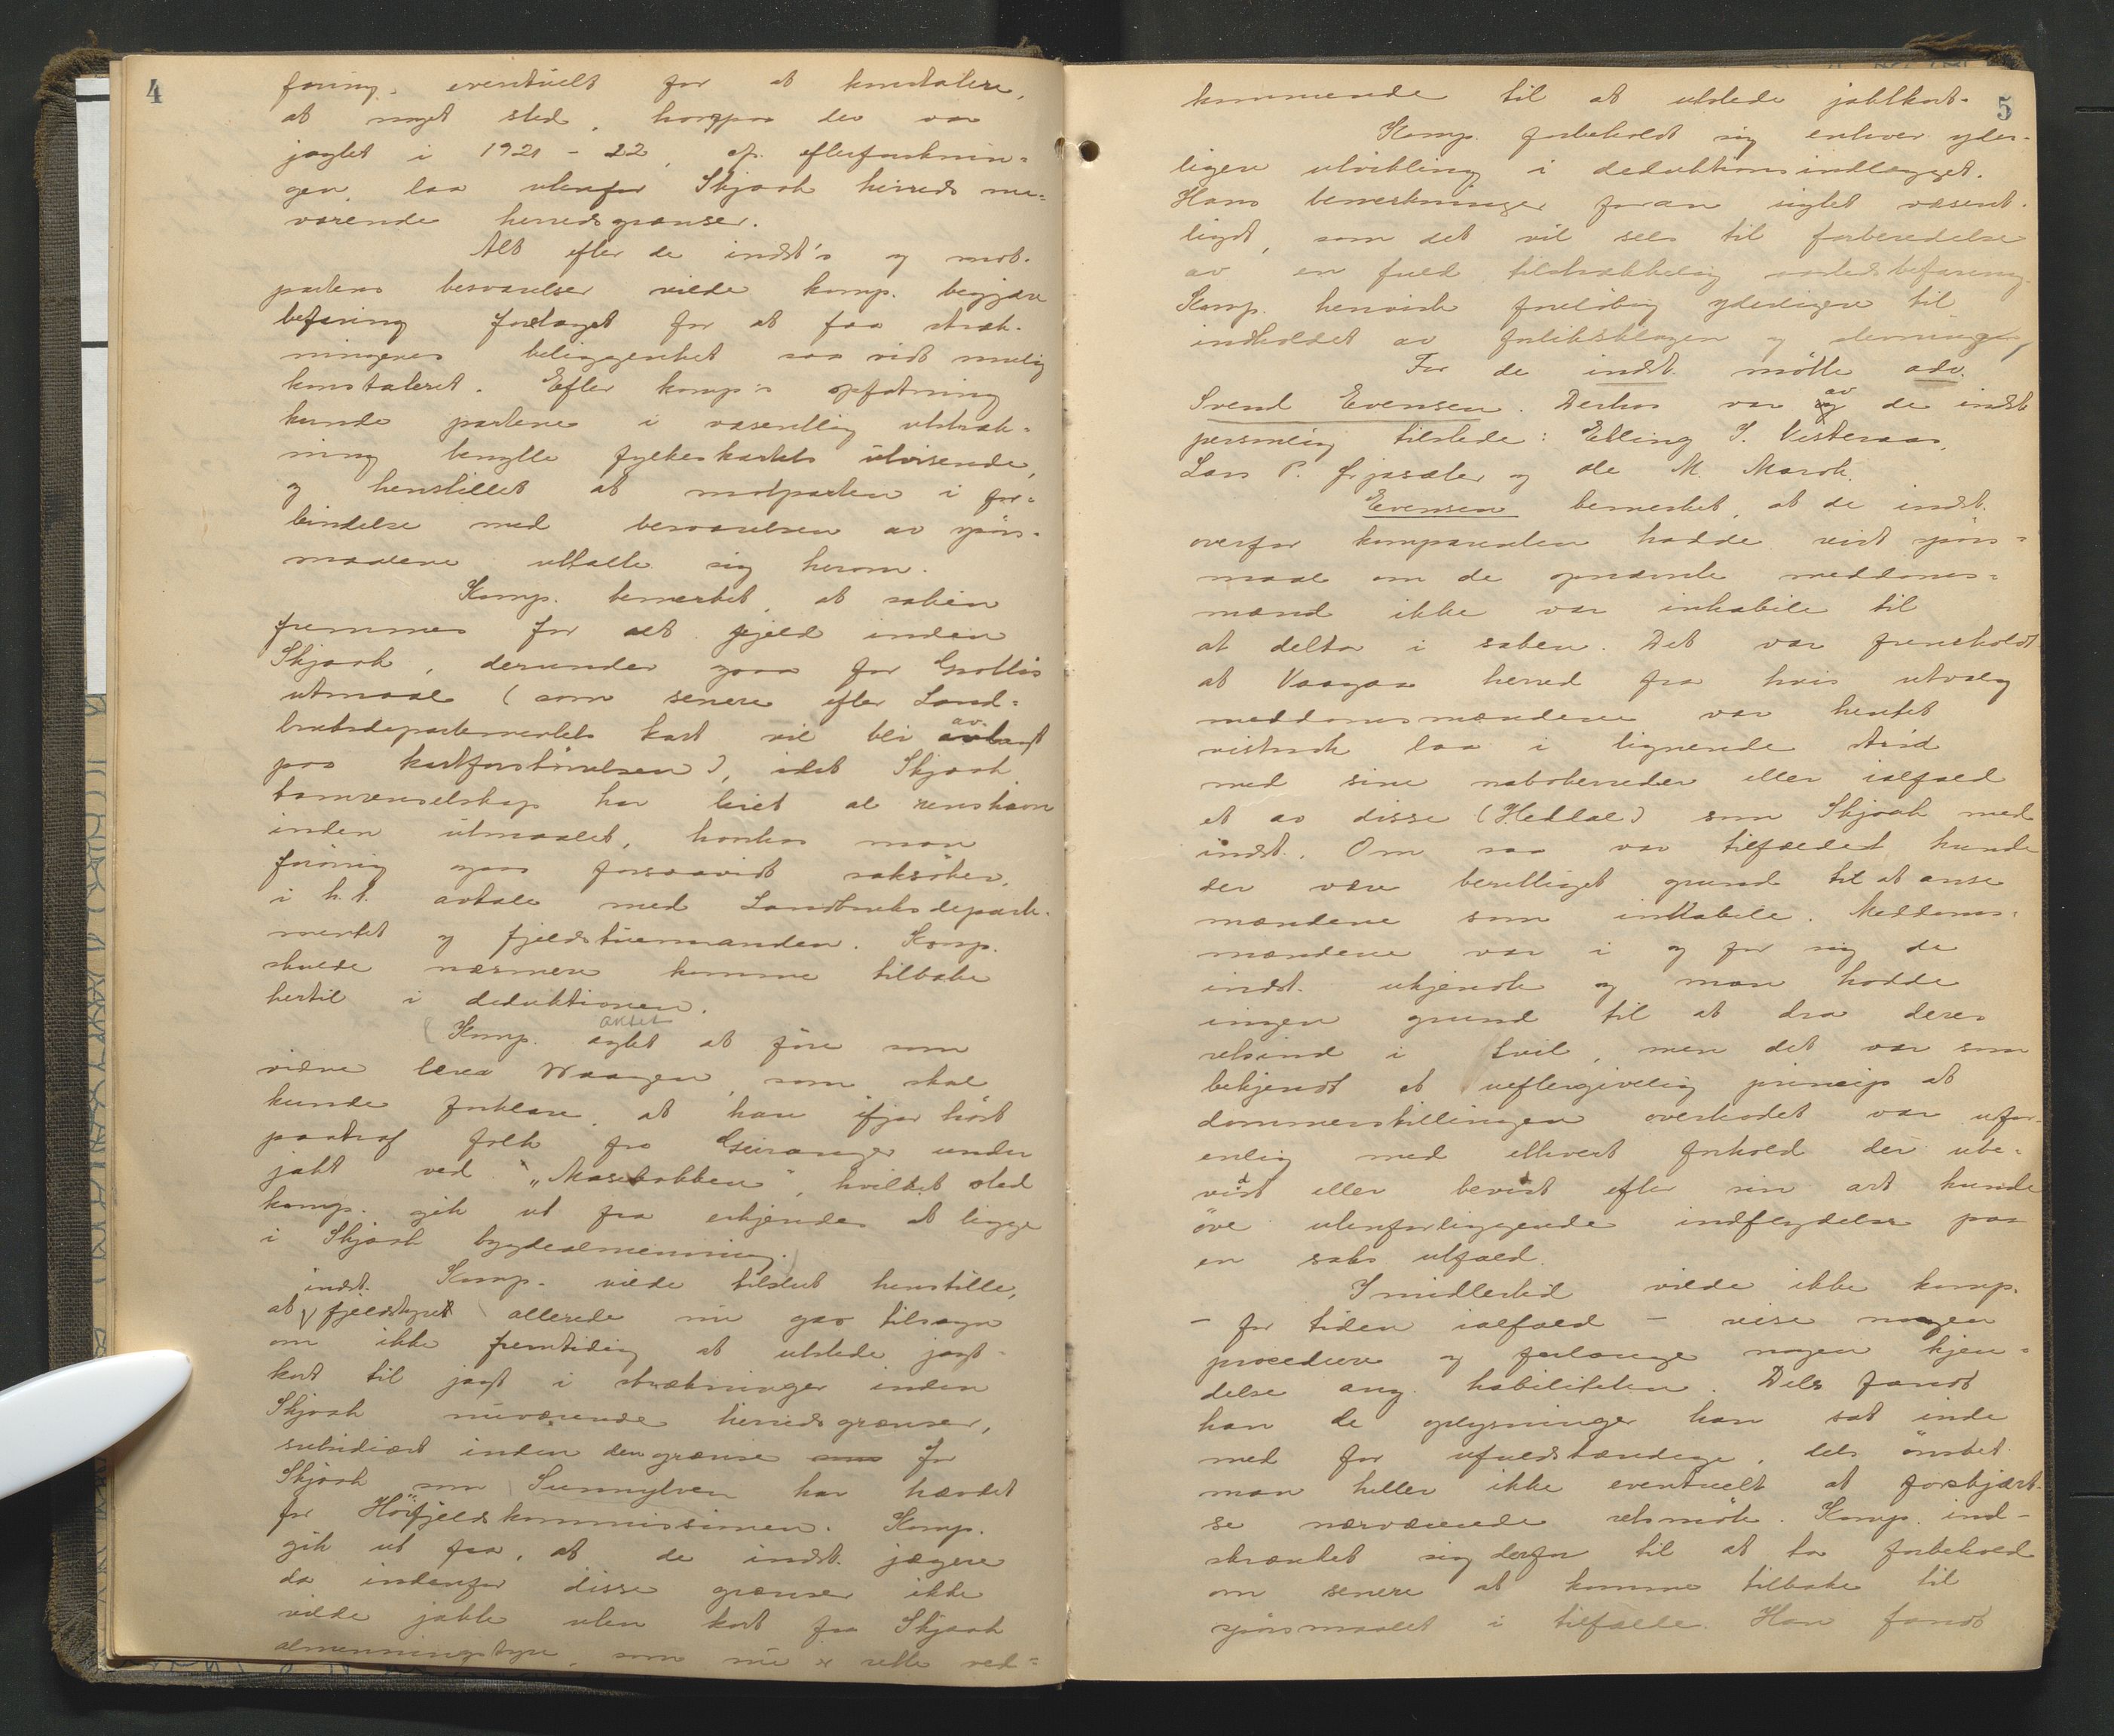 4
faring, eventuelt for at konstatere,
at noget sted, hvorpaa der var
jagtet i 1921-22, cfr. efterforsknin=
gen, laa utenfor Skjaak herreds nu=
værende herredsgrænser.
Alt efter de indst's og mot-
partens besvarelser vilde komp. begjære
befaring foretaget for at faa stræk-
ningenes beliggenhet saa vidt mulig
konstateret. Efter komp's opfatning
kunde partene i væsentlig utstræk-
ning benytte fylkeskartets utvisende,
og henstillet at motparten i for=
bindelse med besvarelsen av spörs-
maalene uttalte sig herom.
Komp. bemerket, at saken
fremmes for alt fjeld inden
Skjaak, derunder ogsaa for Grotlis
utmaal (som senere efter Land=
bruksdepartementets kart vil bli avlagt
av-
paa kartforstörrelsen), idet Skjaak
tamrenselskap har leiet al renshavn
inden utmaalet, hvorhos man
foröurig ogsaa forsaavidt saksöker,
i h.t. avtale med Landbruksdeparte-
mentet og fjeldstuemanden. Komp.
skulde nærmere komme tilbake
hertil i deduktionen.
aktet
(Komp. agtet at före som
vidne lærer Waagen, som skal
kunde forklare, at han ifjor höst
paatraf folk fra Geiranger under
jakt ved "Masebakken", hvilket sted
komp. gik ut fra erkjendes at ligge
i Skjaak bygdealmenning.)
Komp. vilde tilslut henstille,
indst.
at fjeldstyret allerede nu gav tilsagn
om ikke fremtidig at utstede jagt-
kort til jagt i strækninger inden
Skjaak nuværende herredsgrænser,
subsidiært inden den grænse som for
Skjaak som Sunnylven har hævdet
for Höifjeldskommissionen. Komp.
gik ut fra, at de indst. jægere
da indenfor disse grænser ikke
vilde jakte uten kort fra Skjaak
almenningstyre, som nu er rette ved=
5
kommende til at utstede jaktkort.
Komp. forbeholdt sig enhver yder-
ligere utvikling i deduktionsindlægget.
Hans bemerkninger foran sigtet væsent-
ligst, som det vil sees til forberedelse
av en fuld tilstrækkelig aastedsbefaring.
Komp. henviste foreløbig yderligere til
indholdet av forliksklagen og stevningen,
For de indst. mötte adv.
Svend Evensen. Derhos var og de indst
av
personlig tilstede: Elling J. Vesteraas,
Lars P. Gjøsæter og Ole M. Maraak.
Evensen bemerket, at de indst.
overfor komparenten hadde reist spörs=
maal om de opnævnte meddoms=
mænd ikke var inhabile til
at delta i saken. Det var fremholdt
at Vaagaa herred fra hvis utvalg
meddomsmændene var hentet
vistnok laa i lignende strid
med sine naboherreder eller ialfald
et av disse (Heddal) som Skjaak med
indst. Om saa var tilfældet kunde
der være berettiget grund til at anse
mændene som inhabile. Meddoms-
mændene var i og for sig de
indst. ukjendte og man hadde
ingen grund til at dra deres
retsind i tvil, men det var som
bekjendt et ueftergivelig princip at
dommerstillingen overhodet var ufor-
enlig med ethvert forhold der ube=
vist eller bevist efter sin art kunde
öve utenforliggende indflydelse paa
en saks utfald.
Imidlertid vilde ikke komp.
- for tiden ialfald - reise nogen
procedure og forlange nogen kjen=
delse ang. habiliteten. Dels fandt
han de oplysninger han sat inde
med for ufuldstændige, dels önsket
man heller ikke eventuelt at forskjært-
se nærværende retsmöte. Komp. ind-
skrænket sig derfor til at ta forbehold
om senere at komme tilbake til
spörsmaalet i tilfælde. Han fandt